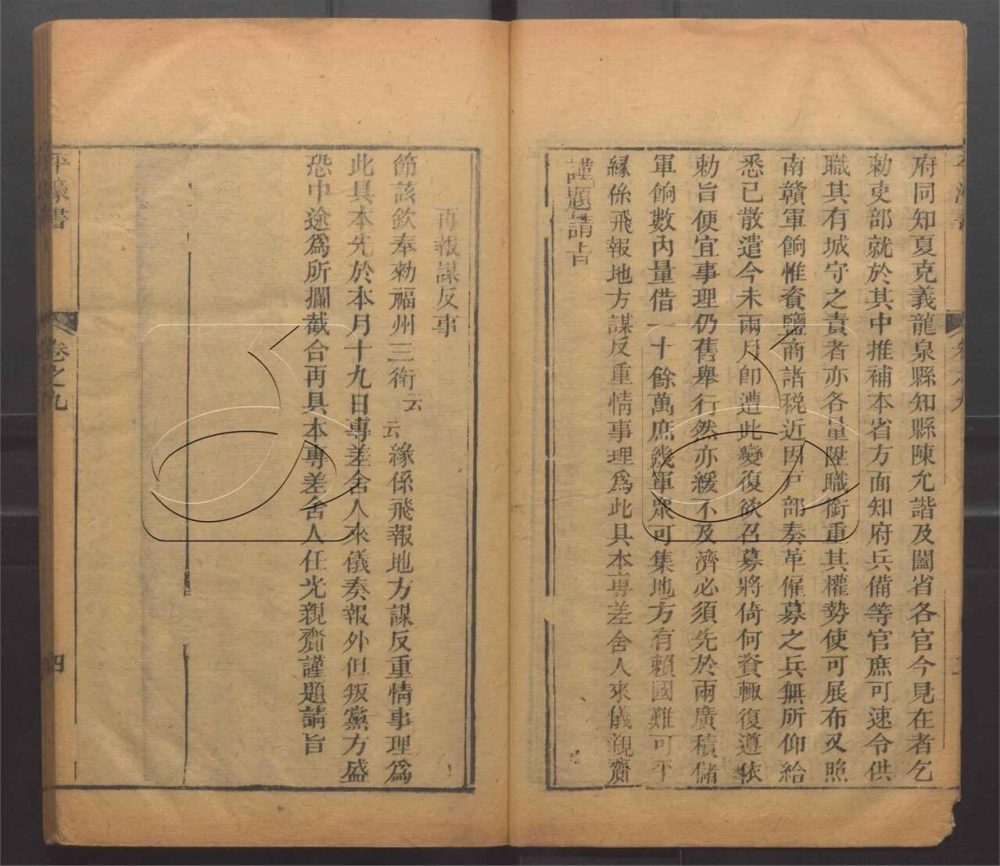 府同知夏克義龍泉縣知縣陳允諧及闔省各官今見在者乞
勅吏部就於其中推補本省方面知府兵備等官庶可速令供
職其有城守之責者亦各量陞職銜重其權勢使可展布又照
南贛軍餉惟資鹽商諸稅近因戶部奏革僱募之兵無所仰給
悉已散遣今未兩月卽遭此變復欲召募將倚何資輒復遵依
勅旨便宜事理仍舊舉行然亦緩不及濟必須先於兩廣積儲
軍餉數內量借一十餘萬庶幾軍衆可集地方有賴國難可平
緣係飛報地方謀反重情事理爲此具本專差舍人來儀親齎
謹題請旨
再報謀反事
節該欽奉勅福州三衛云云緣係飛報地方謀反重情事理爲
此具本先於本月十九日專差舍人來儀奏報外但叛黨方盛
恐中途爲所攔截合再具本專差舍人任光親齎謹題請旨
平濠書
卷之九
四